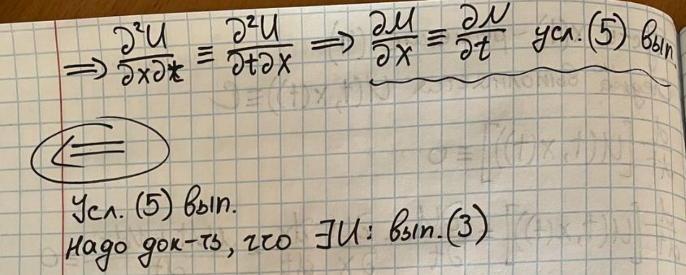 ⟹ ∂²U/∂x∂t ≡ ∂²U/∂t∂x ⟹ ∂M/∂x ≡ ∂N/∂t усл. (5) вып.
⟸
Усл. (5) вып.
Надо док-ть, что ∃U: вып. (3)